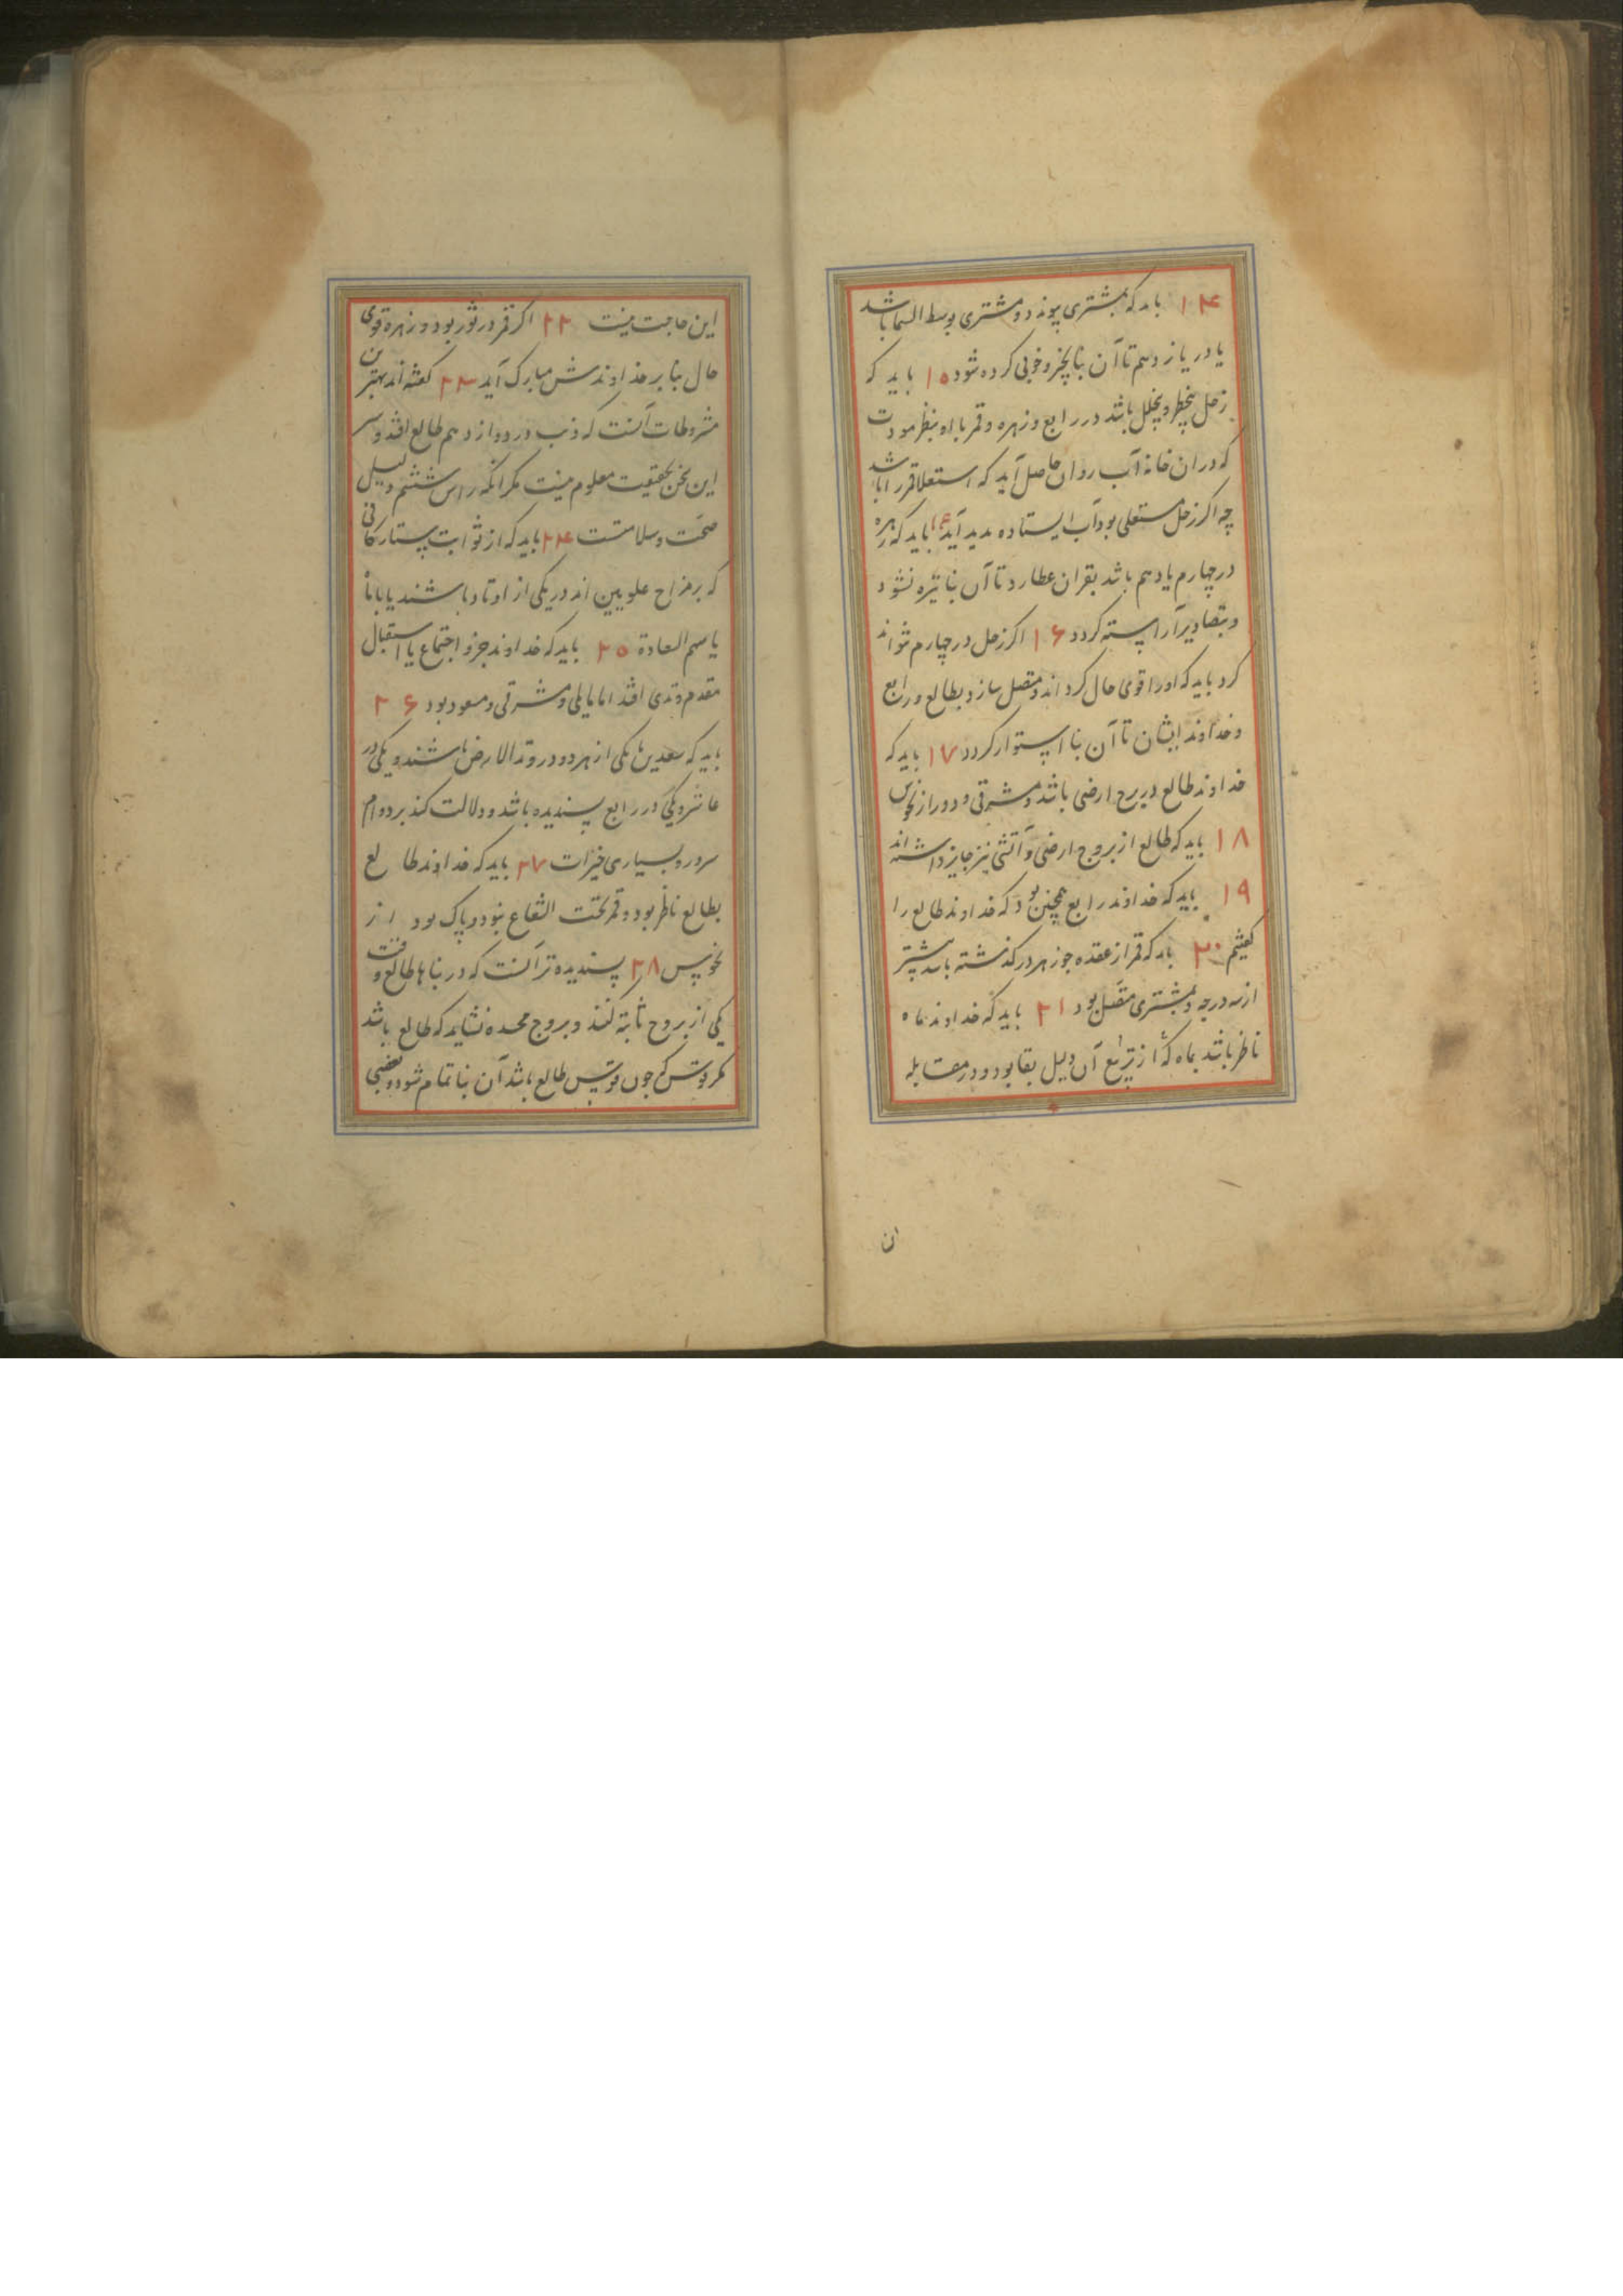 ۱۴ باید که بمشتری پیوندد و مشتری بوسط السما باشد
یا در یازدهم تا آن بنا بخیر و خوبی کرده شود ۱۵ باید که
زحل بیخطر و بیخلل باشد در رابع و زهره و قمر با او بنظر مودت
که در ان خانه آب روان حاصل آید که استعلا قمر را باشد
چه اگر زحل مستعلی بود آب ایستاده بدید آید باید که زهره
در چهارم یا دهم باشد بقران عطارد تا آن بنا تیره نشود
و بتصاویر آراسته کردد ۱۶ اکر زحل در چهارم نتواند
کرد باید که اورا قوی حال کرداند و متصل سازد بطالع و رابع
و خداوند ایشان تا آن بنا استوار کردد ۱۷ باید که
خداوند طالع در برج ارضی باشد و مشرقی و دور از نحوس
۱۸ باید که طالع از بروج ارضی و آتشی نیز جایز داشته اند
۱۹ باید که خداوند رابع همچنین بود که خداوند طالع را
کفتیم ۲۰ باید که قمر از عقده جوزهر در کذشته باشد بیشتر
از سه درجه و بمشتری متصل بود ۲۱ باید که خداوند ماه
ناظر باشد بماه که از تربیع آن دلیل بقا بود و در مقابله
ان
این حاجت نیست ۲۲ اکر قمر در ثور بود و زهره قوی
حال بنا بر خداوندش مبارک آید ۲۳ کفته اند بهترین
مشروطات آنست که ذنب در دوازدهم طالع افتد و سر
این سخن بحقیقت معلوم نیست مکر آنکه راس ششم دلیل
صحت و سلامتست ۲۴ باید که از ثوابت ستارکانی
که بر مزاج علویین اند در یکی از اوتاد باشند یا با ماه
یا سهم السعادة ۲۵ باید که خداوند جزو اجتماع یا استقبال
مقدم وتدی افتد اما مایلی و مشرقی و مسعود بود ۲۶
باید که سعدین یا یکی از هر دو در وتد الارض باشند و یکی در
عاشر و یکی در رابع پسندیده باشد و دلالت کند بر دوام
سرور و بسیاری خیرات ۲۷ باید که خداوند طالع
بطالع ناظر بود و قمر تحت الشعاع نبود و پاک بود از
نحوس ۲۸ پسندیده تر آنست که در بناها طالع وقت
یکی از بروج ثابته کنند و بروج مجسده نشاید که طالع باشد
مکر قوس که چون قوس طالع باشد آن بنا تمام شود و بعضی